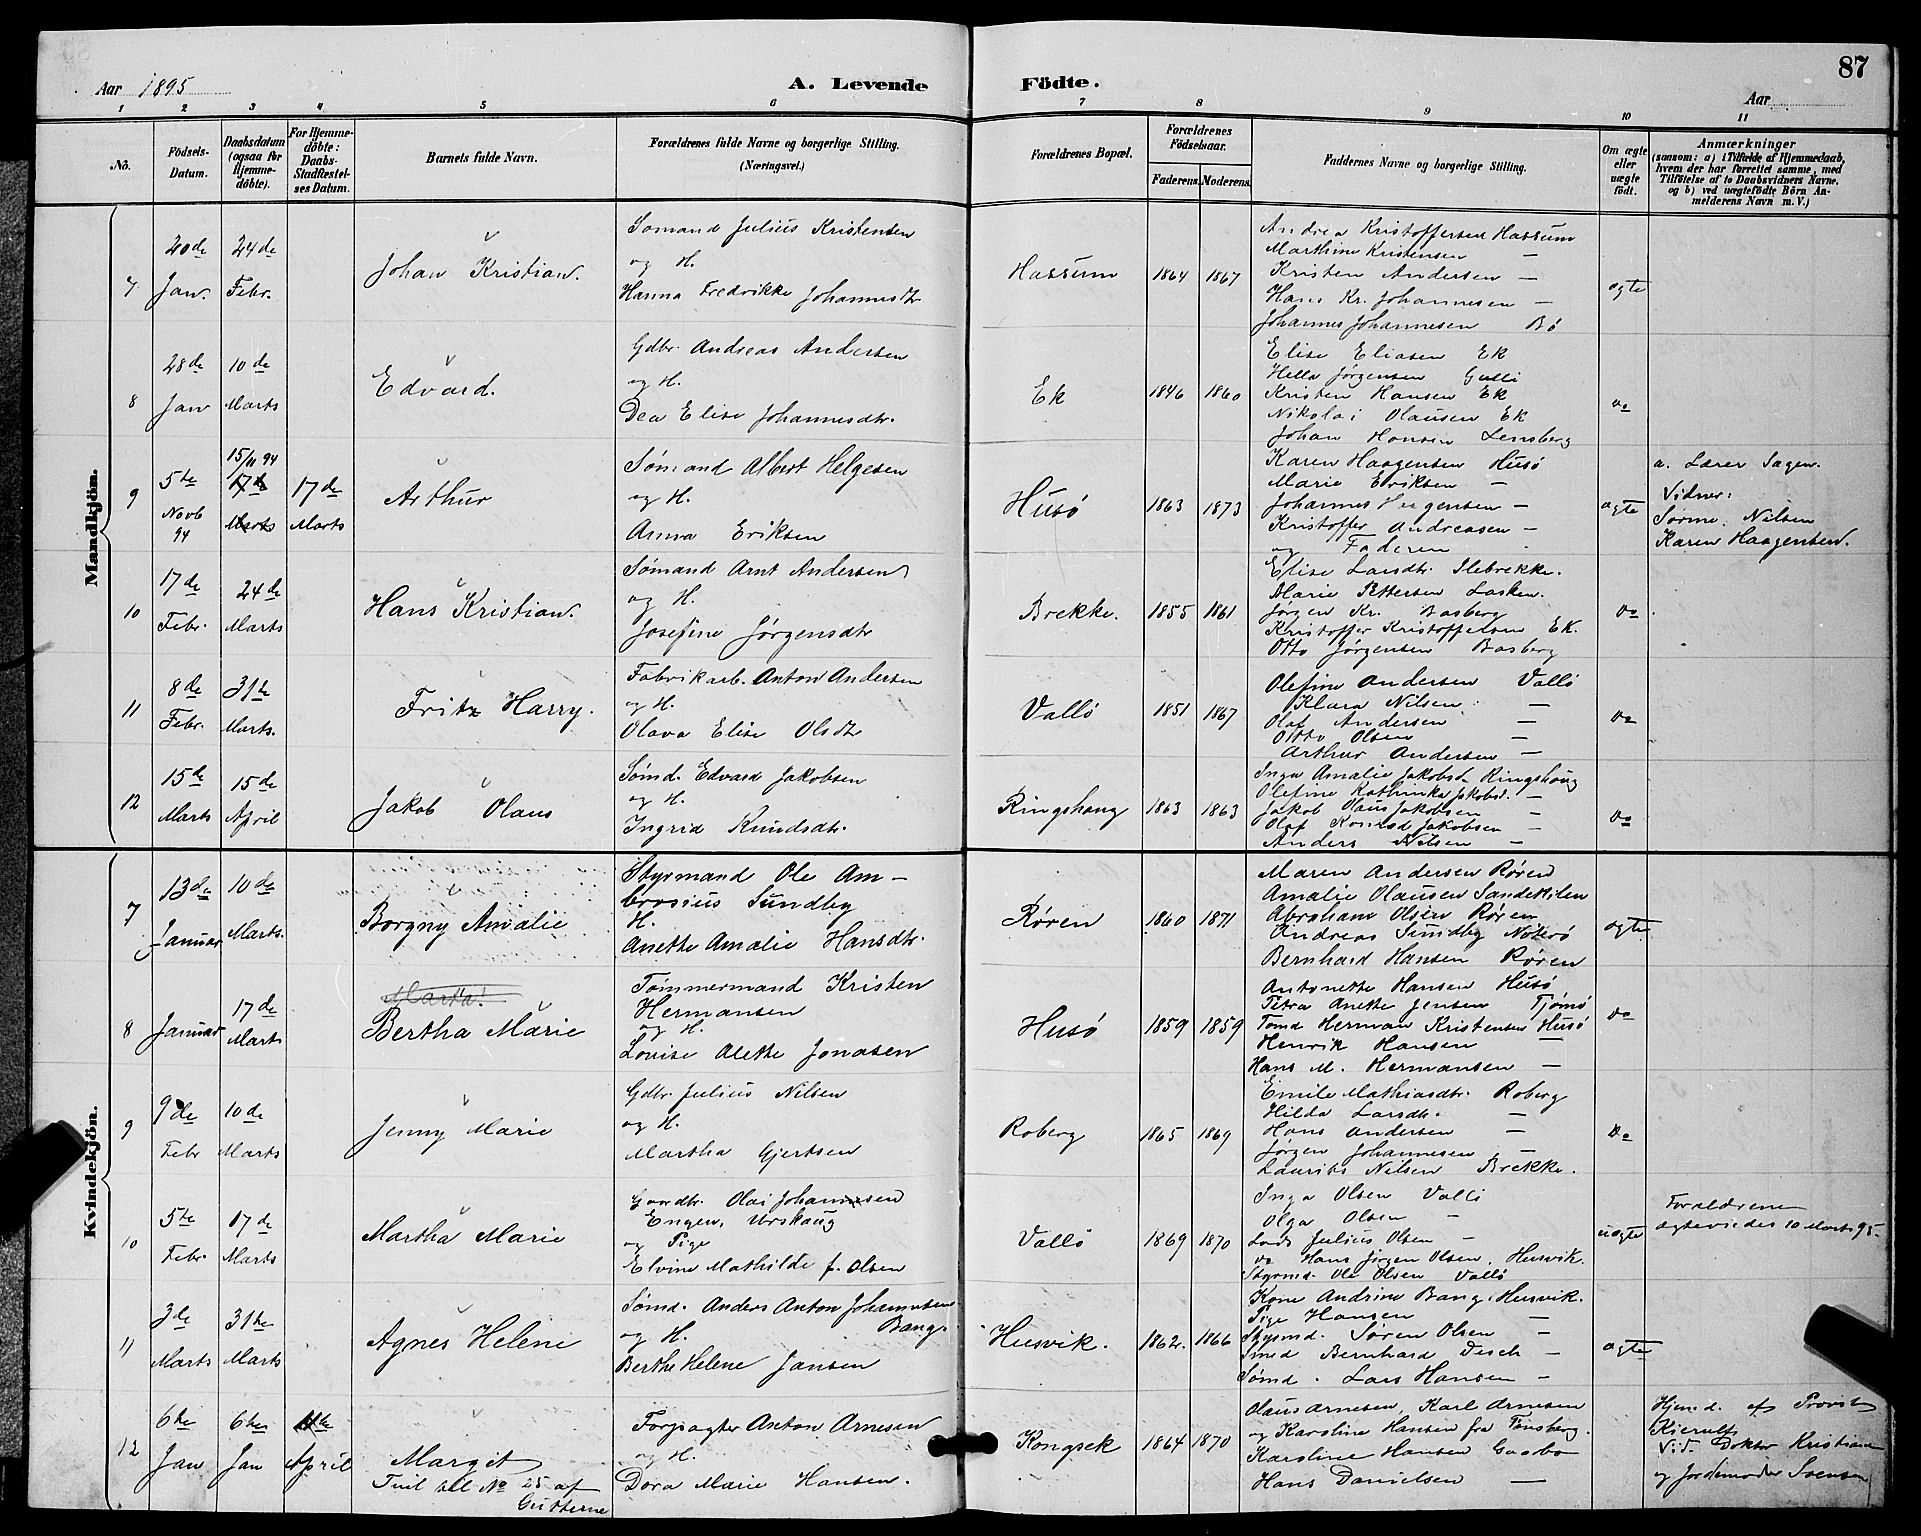 87
Aar 1895
A. Levende
Födte.
Aar
1 2 3 4 5 6 7 8 9 10 11
No.
Födsels-Datum.
Daabsdatum (ogsaa for Hjemme-döbte).
For Hjemme-döbte: Daabs-Stadfæstel-ses Datum.
Barnets fulde Navn.
Forældrenes fulde Navne og borgerlige Stilling.
(Næringsvei.)
Forældrenes Bopæl.
Forældrenes Födselsaar.
Faderens. Moderens.
Faddernes Navne og borgerlige Stilling.
Om ægte eller uægte födt.
Anmærkninger
(saasom: a) i Tilfælde af Hjemmedaab,
hvem der har forrettet samme, med
Tilföielse af to Daabsvidners Navne.
og b) ved uægtefödte Börn An-
melderens Navn m. V.)
Mandkjön.
7
20de Jan.
24de Febr.
Johan Kristian.
Sømand Julius Kristensen
og H.
Hanna Fredrikke Johannesdtr
Hassum
1864 1867
Andrea Kristoffersen Hassum
Marthine Kristensen —
Kristen Andersen —
Hans Kr. Johannesen —
Johannes Johannesen Bö
ægte
8
28de Jan
10de Marts
Edvard.
Gdbr. Andreas Andersen
og H.
Dea Elise Johannesdtr.
Ek
1846 1860
Elise Eliasen Ek
Hella Jørgensen Gulli
Kristen Hansen Ek
Nikolai Olausen Ek
Johan Hansen Lensberg
do
9
5te Novb 94
15/11 94
17de Marts
17de Marts
Arthur
Sømand Albert Helgesen
og H.
Anna Eriksen
Husö
1863 1873
Karen Haagensen Husö
Marie Eriksen —
Johannes Haagensen —
Kristoffer Andreasen —
og Faderen
ægte
a. Lærer Sagen.
Vidner:
Sørine Nilsen
Karen Haagensen.
10
17de Febr.
24de Marts
Hans Kristian.
Sømand Arnt Andersen
og H.
Josefine Jørgensdtr
Brekke.
1855 1861
Elise Larsdtr. Slebrekke.
Marie Pettersen Lasken.
Jørgen Kr. Basberg
Kristoffer Kristoffersen Ek.
Otto Jørgensen Basberg
do
11
8de Febr.
31te Marts.
Fritz Harry.
Fabrikarb. Anton Andersen
og H.
Olava Elise Olsdtr
Vallö
1851 1867
Olefine Andersen Vallö
Klara Nilsen —
Olaf Andersen —
Otto Olsen —
Arthur Andersen —
do
12
15de Marts
15de April
Jakob Olaus
Sømd. Edvard Jakobsen
og H.
Ingrid Knudsdtr.
Ringshaug
1863 1863
Inga Amalie Jakobsd. Ringshaug
Olefine Kathinka Jakobsd. —
Jakob Olaus Jakobsen —
Olaf Konrad Jakobsen —
Anders Nilsen —
do
Kvindekjön.
7
13de Januar
10de Marts.
Borgny Amalie
Styrmand Ole Am-
brosius Sundby
H.
Anette Amalie Hansdtr.
Røren
1860 1871
Maren Andersen Røren
Amalie Olausen Sandekilen
Abraham Olsen Røren
Andreas Sundby Nöterö
Bernhard Hansen Røren
ægte
8
Januar
17de Marts
Marta!
Bertha Marie
Tømmermand Kristen
Hermansen
og H.
Louise Olette Jonasen
Husö
1859 1859
Antonette Hansen Husö
Petra Anette Jensen Tjømö
Tømd Herman Kristensen Husö
Henrik Hansen —
Hans M. Hermansen —
do
9
9de Febr
10de Marts
Jenny Marie
Gdbr. Julius Nilsen
og H.
Martha Gjertsen
Roberg
1865 1869
Emile Mathiasdtr. Roberg
Hilda Larsdtr. —
Hans Andersen —
Jørgen Johannesen —
Laurits Nilsen Brekke.
do
10
5te Febr.
17de Marts
Martha Marie
Gaardbr. Olai Johannesen
Engen, Urskaug
og Pige
Elvine Mathilde f. Olsen
Vallö
1869 1870
Inga Olsen Vallö
Olga Olsen —
Lods Julius Olsen —
do Hans Jørgen Olsen, Husvik.
Styrmd. Ole Olsen Vallö
uægte
Forældrene
ægteviedes 10 Marts 95.
11
3de Marts
31te Marts
Agnes Helene
Sømd. Anders Anton Johannesen
Bang.
og H.
Berthe Helene Jansen
Husvik.
1862. 1866
Kone Andrine Bang, Husvik.
Pige Hansen —
Styrmd. Søren Olsen —
Smed Bernhard Desch —
Sømd. Lars Hansen —
ægte
12
6te Jan
6te Jan
April
Margit
Tvil. til No 25 af
Gutterne
Forpagter Anton Arnesen
og H.
Dora Marie Hansen.
Kongsek
1864 1870
Olaus Arnesen, Karl Arnesen
og Karoline Hansen fra Tønsberg.
Karoline Hansen Gaasbo
Hans Danielsen —
Hjemd. af Provst
Kierulf
Vid. Doktor Kristian
og Jordemoder Svensen